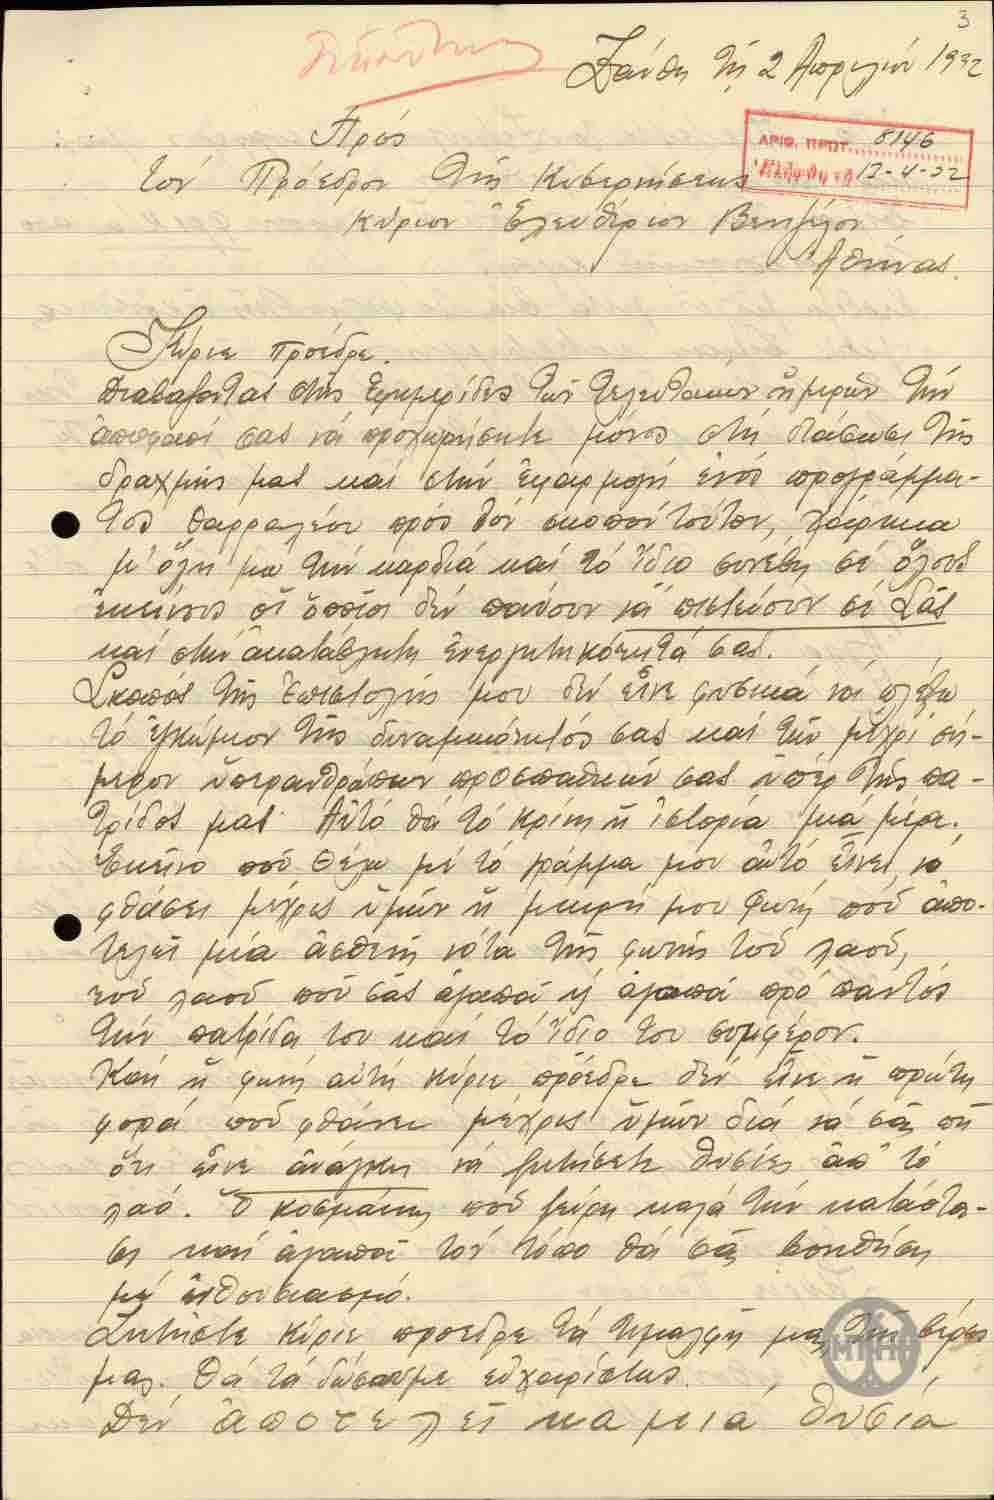 3
Ξάνθη τῇ 2 Ἀπριλίου 1932
Πρός
ΑΡΙΘ. ΠΡΩΤ. 8146
12-4-32
τόν Πρόεδρον τῆς Κυβερνήσεως
Κύριον Ἐλευθέριον Βενιζέλον
Ἀθήνας.
Κύριε πρόεδρε.
Διαβάζοντας στίς ἐφημερίδες τῶν τελευταίων ἡμερῶν τήν
ἀπόφασί σας νά προχωρήσητε μόνος στή διάσωσι τῆς
δραχμῆς μας καί στήν ἐφαρμογή ἑνός προγράμμα-
τος θαρραλέου πρός τόν σκοπόν τοῦτον, χάρηκα
μ' ὅλη μου τήν καρδιά καί τό ἴδιο συνέβη σέ ὅλους
ἐκείνους οἱ ὁποῖοι δέν παύουν νά πιστεύουν σέ Σᾶς
καί στήν ἀκατάβλητη ἐνεργητικότητά σας.
Σκοπός τῆς ἐπιστολῆς μου δέν εἶνε φυσικά νά πλέξω
τό ἐγκώμιον τῆς δυναμικότητός σας καί τῶν μέχρι σή-
μερον ὑπερανθρώπων προσπαθειῶν σας ὑπέρ τῆς πα-
τρίδος μας. Αὐτό θά τό κρίνῃ ἡ ἱστορία μιά μέρα.
Ἐκεῖνο πού θέλω μέ τό γράμμα μου αὐτό εἶνε, νά
φθάσει μέχρις ὑμῶν ἡ μικρή μου φωνή πού ἀπο-
τελεῖ μία ἀσθενῆ νότα τῆς φωνῆς τοῦ λαοῦ,
τοῦ λαοῦ πού σᾶς ἀγαπᾶ ἤ ἀγαπᾶ πρό παντός
τήν πατρίδα του καί τό ἴδιο του συμφέρον.
Καί ἡ φωνή αὐτή κύριε πρόεδρε δέν εἶνε ἡ πρώτη
φορά πού φθάνει μέχρις ὑμῶν διά νά σᾶς πῇ
ὅτι εἶνε ἀνάγκη νά ζητήσετε θυσίες ἀπ' τό
λαό. Ὁ κοσμάκης πού ξεύρει καλά τήν κατάστα-
σι καί ἀγαπᾶ τόν τόπο θά σᾶς βοηθήσῃ
μέ ἐνθουσιασμό.
Ζητῆστε κύριε πρόεδρε τά τιμαλφῆ μας, τίς βέρες
μας. Θά τά δώσουμε εὐχαρίστως.
Δέν ἀποτελεῖ καμμιά θυσία